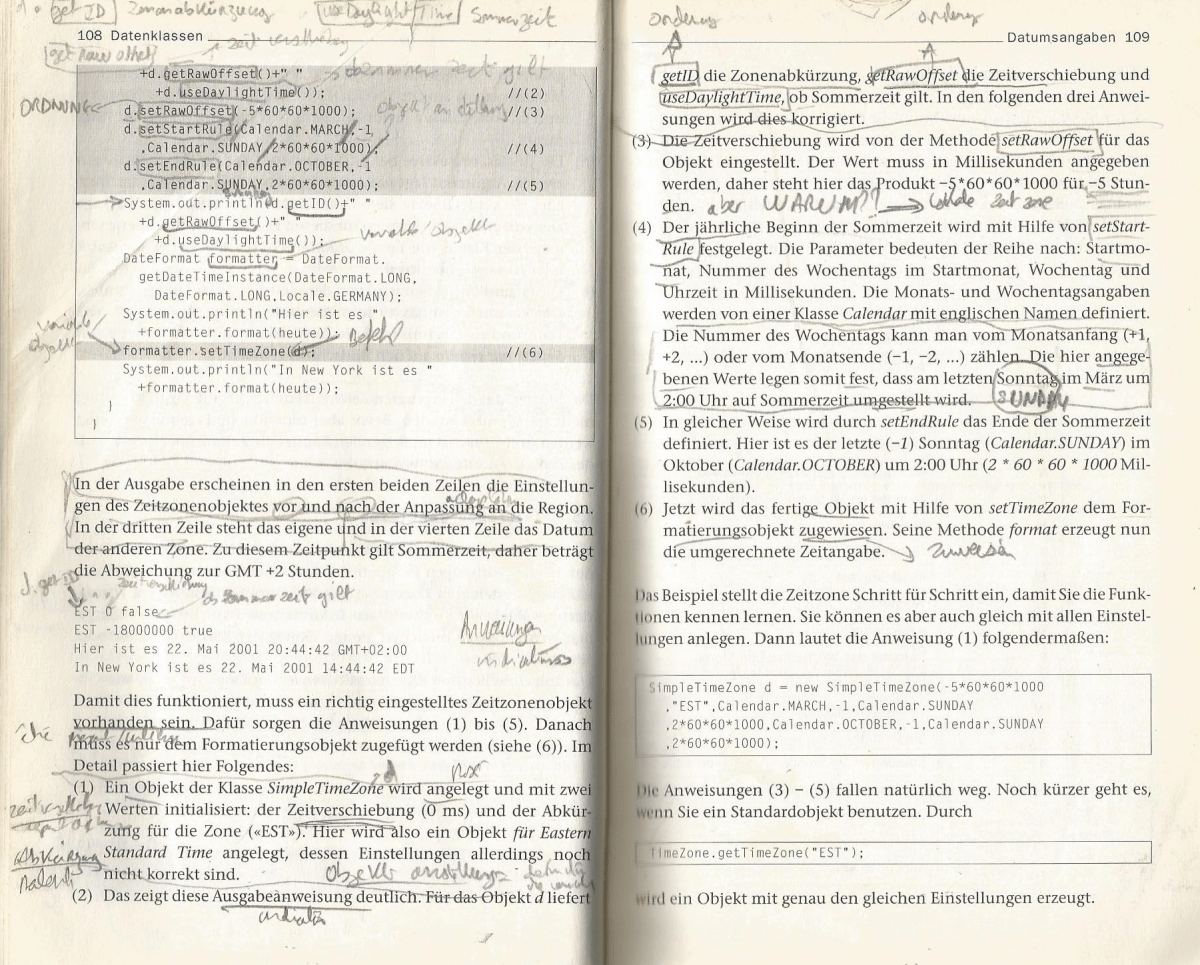 get ID Zonenabkürzung useDaylight Time Sommerzeit
108 Datenklassen
get Raw offset
+d.getRawOffset()+" "
+d.useDaylightTime()); //(2)
ORDNUNG
d.setRawOffset(-5*60*60*1000); //(3)
d.setStartRule(Calendar.MARCH,-1
,Calendar.SUNDAY,2*60*60*1000); //(4)
d.setEndRule(Calendar.OCTOBER,-1
,Calendar.SUNDAY,2*60*60*1000); //(5)
System.out.println(d.getID()+" "
+d.getRawOffset()+" "
+d.useDaylightTime());
DateFormat formatter = DateFormat.
getDateTimeInstance(DateFormat.LONG,
DateFormat.LONG,Locale.GERMANY);
System.out.println("Hier ist es "
+formatter.format(heute)); Befehl
formatter.setTimeZone(d); //(6)
System.out.println("In New York ist es "
+formatter.format(heute));
}
}
In der Ausgabe erscheinen in den ersten beiden Zeilen die Einstellun-
gen des Zeitzonenobjektes vor und nach der Anpassung an die Region.
In der dritten Zeile steht das eigene und in der vierten Zeile das Datum
der anderen Zone. Zu diesem Zeitpunkt gilt Sommerzeit, daher beträgt
die Abweichung zur GMT +2 Stunden.
ob Sommerzeit gilt
EST 0 false
EST -18000000 true
Hier ist es 22. Mai 2001 20:44:42 GMT+02:00
In New York ist es 22. Mai 2001 14:44:42 EDT
Damit dies funktioniert, muss ein richtig eingestelltes Zeitzonenobjekt
vorhanden sein. Dafür sorgen die Anweisungen (1) bis (5). Danach
muss es nur dem Formatierungsobjekt zugefügt werden (siehe (6)). Im
Detail passiert hier Folgendes:
(1) Ein Objekt der Klasse SimpleTimeZone wird angelegt und mit zwei
Werten initialisiert: der Zeitverschiebung (0 ms) und der Abkür-
zung für die Zone («EST»). Hier wird also ein Objekt für Eastern
Standard Time angelegt, dessen Einstellungen allerdings noch
nicht korrekt sind.
Abkürzung
(2) Das zeigt diese Ausgabeanweisung deutlich. Für das Objekt d liefert
Datumsangaben 109
getID die Zonenabkürzung, getRawOffset die Zeitverschiebung und
useDaylightTime, ob Sommerzeit gilt. In den folgenden drei Anwei-
sungen wird dies korrigiert.
(3) Die Zeitverschiebung wird von der Methode setRawOffset für das
Objekt eingestellt. Der Wert muss in Millisekunden angegeben
werden, daher steht hier das Produkt −5*60*60*1000 für −5 Stun-
den. aber WARUM?! → lokale Zeit zone
(4) Der jährliche Beginn der Sommerzeit wird mit Hilfe von setStart-
Rule festgelegt. Die Parameter bedeuten der Reihe nach: Startmo-
nat, Nummer des Wochentags im Startmonat, Wochentag und
Uhrzeit in Millisekunden. Die Monats- und Wochentagsangaben
werden von einer Klasse Calendar mit englischen Namen definiert.
Die Nummer des Wochentags kann man vom Monatsanfang (+1,
+2, ...) oder vom Monatsende (−1, −2, ...) zählen. Die hier angege-
benen Werte legen somit fest, dass am letzten Sonntag im März um
2:00 Uhr auf Sommerzeit umgestellt wird. SUNDAY
(5) In gleicher Weise wird durch setEndRule das Ende der Sommerzeit
definiert. Hier ist es der letzte (−1) Sonntag (Calendar.SUNDAY) im
Oktober (Calendar.OCTOBER) um 2:00 Uhr (2 * 60 * 60 * 1000 Mil-
lisekunden).
(6) Jetzt wird das fertige Objekt mit Hilfe von setTimeZone dem For-
matierungsobjekt zugewiesen. Seine Methode format erzeugt nun
die umgerechnete Zeitangabe.
Das Beispiel stellt die Zeitzone Schritt für Schritt ein, damit Sie die Funk-
tionen kennen lernen. Sie können es aber auch gleich mit allen Einstel-
lungen anlegen. Dann lautet die Anweisung (1) folgendermaßen:
SimpleTimeZone d = new SimpleTimeZone(-5*60*60*1000
,"EST",Calendar.MARCH,-1,Calendar.SUNDAY
,2*60*60*1000,Calendar.OCTOBER,-1,Calendar.SUNDAY
,2*60*60*1000);
Die Anweisungen (3) – (5) fallen natürlich weg. Noch kürzer geht es,
wenn Sie ein Standardobjekt benutzen. Durch
TimeZone.getTimeZone("EST");
wird ein Objekt mit genau den gleichen Einstellungen erzeugt.